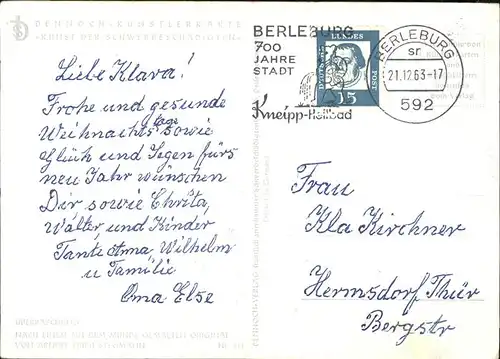 DENNOCH-KÜNSTLERKARTE
KUNST DER SCHWERBESCHÄDIGTEN
BERLEBURG
700
JAHRE
STADT
Kneipp-Heilbad
DEUTSCHE
BUNDES
POST
15
BERLEBURG
sr
21.12.63-17
592
Liebe Klara!
Frohe und gesunde
Weihnachtstage sowie
Glück und Segen fürs
neu Jahr wünschen
Dir sowie Christa,
Walter und Kinder
Tante Anna, Wilhelm
u Familie
Oma Else
Frau
Kla Kirchner
Hermsdorf Thür
Bergstr